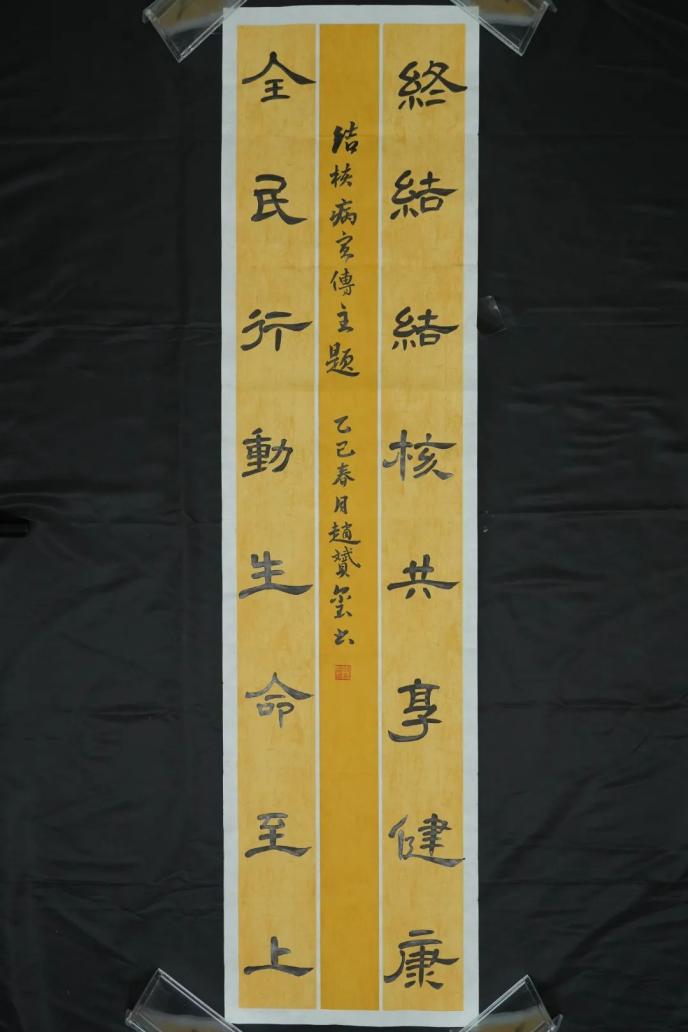 終結結核共享健康
全民行動生命至上
结核病宣傳主题 乙巳春月趙贇玺书